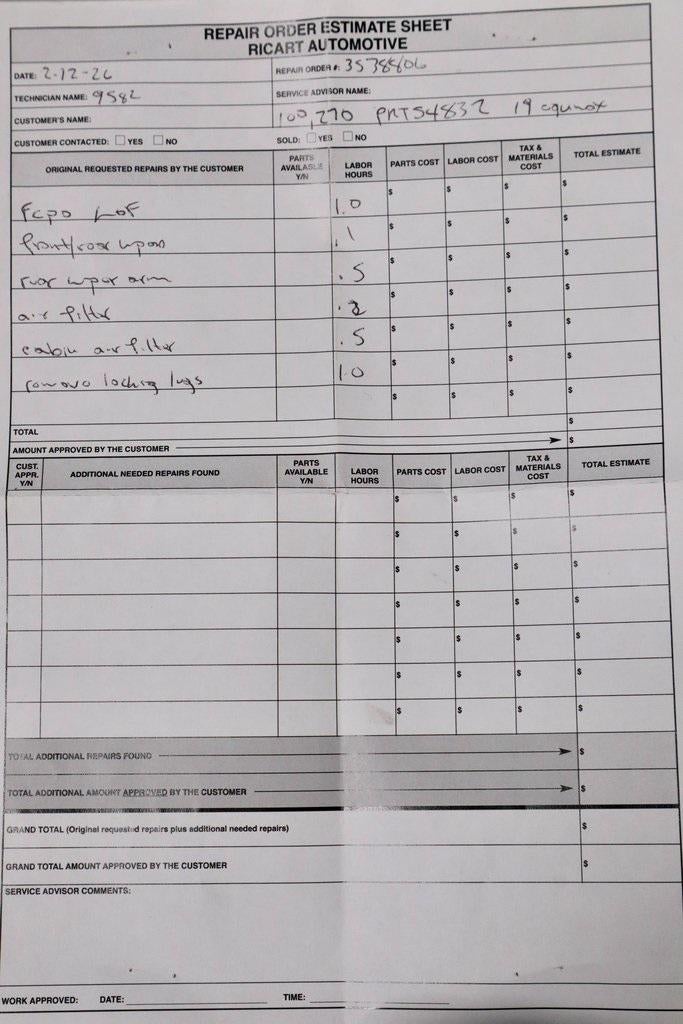 REPAIR ORDER ESTIMATE SHEET
RICART AUTOMOTIVE
DATE: 2-12-26
REPAIR ORDER #: 3578806
TECHNICIAN NAME: 9582
SERVICE ADVISOR NAME:
CUSTOMER'S NAME:
100,270 PRTS4832 19 equinox
CUSTOMER CONTACTED: YES NO
SOLD: YES NO
ORIGINAL REQUESTED REPAIRS BY THE CUSTOMER PARTS AVAILABLE Y/N LABOR HOURS PARTS COST LABOR COST TAX & MATERIALS COST TOTAL ESTIMATE
fcpo LOF 1.0 $ $ $ $
front/rear .1 $ $ $ $
rear wiper arm .5 $ $ $ $
air filter $ $ $ $
cabin air filter .5 $ $ $ $
remove locking lugs 1.0 $ $ $ $
$ $ $ $
TOTAL $
AMOUNT APPROVED BY THE CUSTOMER $
CUST. APPR. Y/N ADDITIONAL NEEDED REPAIRS FOUND PARTS AVAILABLE Y/N LABOR HOURS PARTS COST LABOR COST TAX & MATERIALS COST TOTAL ESTIMATE
$ $ $ $
$ $ $ $
$ $ $ $
$ $ $ $
$ $ $ $
$ $ $ $
$ $ $ $
TOTAL ADDITIONAL REPAIRS FOUND $
TOTAL ADDITIONAL AMOUNT APPROVED BY THE CUSTOMER $
GRAND TOTAL (Original requested repairs plus additional needed repairs) $
GRAND TOTAL AMOUNT APPROVED BY THE CUSTOMER $
SERVICE ADVISOR COMMENTS:
WORK APPROVED: DATE: TIME: